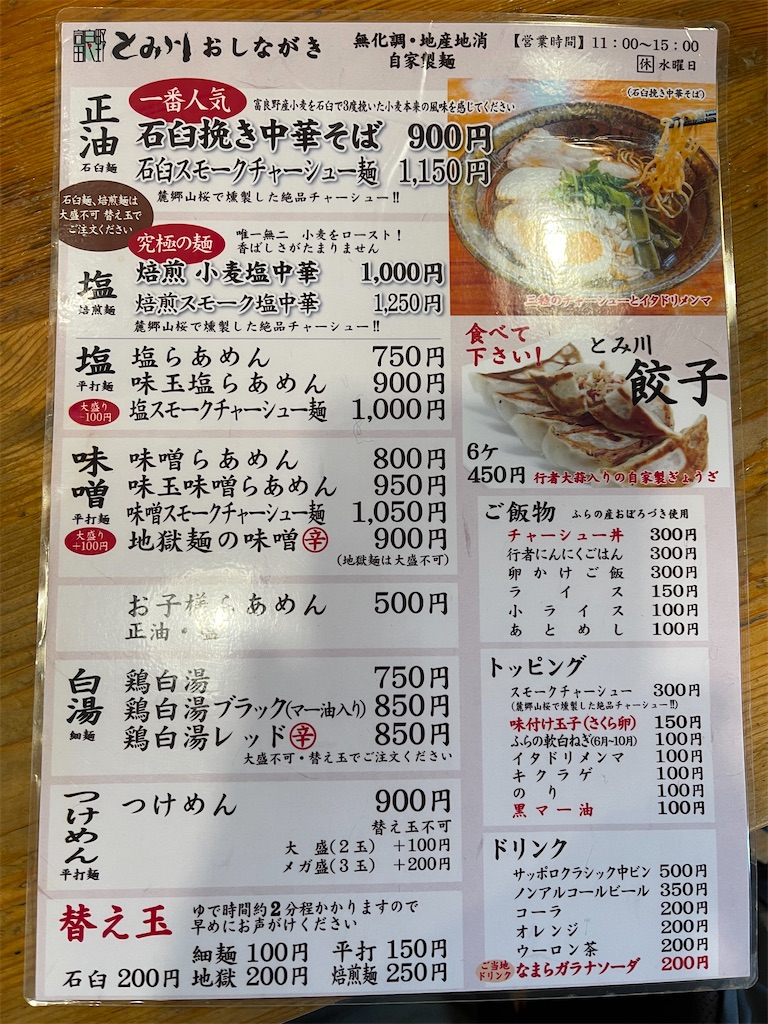 富良野
とみ川 おしながき
無化調・地産地消
自家製麺
【営業時間】11：00～15：00
休 水曜日
正油
石臼麺
一番人気
富良野産小麦を石臼で3度挽いた小麦本来の風味を感じてください
石臼挽き中華そば 900円
石臼スモークチャーシュー麺 1,150円
麓郷山桜で燻製した絶品チャーシュー!!
石臼麺、焙煎麺は
大盛不可 替え玉で
ご注文ください
塩
焙煎麺
究極の麺
唯一無二 小麦をロースト！
香ばしさがたまりません
焙煎 小麦塩中華 1,000円
焙煎スモーク塩中華 1,250円
麓郷山桜で燻製した絶品チャーシュー!!
塩
平打麺
大盛り
+100円
塩らあめん 750円
味玉塩らあめん 900円
塩スモークチャーシュー麺 1,000円
味噌
平打麺
大盛り
+100円
味噌らあめん 800円
味玉味噌らあめん 950円
味噌スモークチャーシュー麺 1,050円
地獄麺の味噌 辛 900円
(地獄麺は大盛不可)
お子様らあめん 500円
正油・塩
白湯
細麺
鶏白湯 750円
鶏白湯ブラック(マー油入り) 850円
鶏白湯レッド 辛 850円
大盛不可・替え玉でご注文ください
つけめん
平打麺
つけめん 900円
替え玉不可
大 盛(2玉) +100円
メガ盛(3玉) +200円
替え玉
ゆで時間約2分程かかりますので
早めにお声がけください
細麺 100円 平打 150円
石臼 200円 地獄 200円 焙煎麺 250円
(石臼挽き中華そば)
三種のチャーシューとイタドリメンマ
食べて
下さい！
とみ川
餃子
6ケ
450円
行者大蒜入りの自家製ぎょうざ
ご飯物 ふらの産おぼろづき使用
チャーシュー丼 300円
行者にんにくごはん 300円
卵かけご飯 300円
ライス 150円
小ライス 100円
あとめし 100円
トッピング
スモークチャーシュー 300円
(麓郷山桜で燻製した絶品チャーシュー!!)
味付け玉子(さくら卵) 150円
ふらの軟白ねぎ(6月~10月) 100円
イタドリメンマ 100円
キクラゲ 100円
のり 100円
黒マー油 100円
ドリンク
サッポロクラシック中ビン 500円
ノンアルコールビール 350円
コーラ 200円
オレンジ 200円
ウーロン茶 200円
ご当地
ドリンク
なまらガラナソーダ 200円